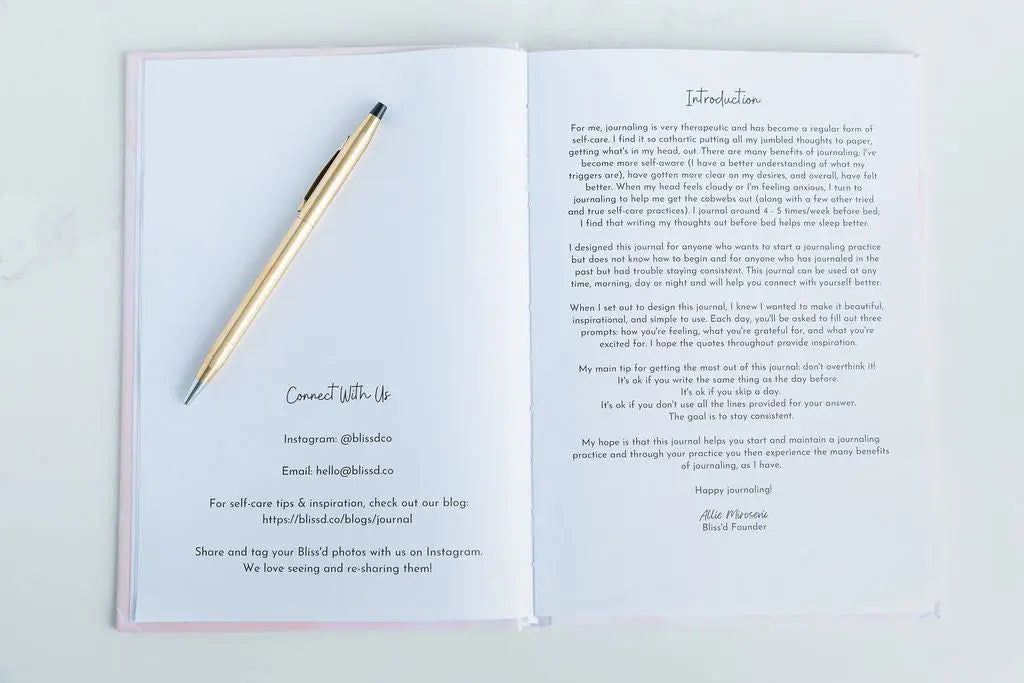 Connect With Us
Instagram: @blissdco
Email: hello@blissd.co
For self-care tips & inspiration, check out our blog:
https://blissd.co/blogs/journal
Share and tag your Bliss'd photos with us on Instagram.
We love seeing and re-sharing them!
Introduction
For me, journaling is very therapeutic and has become a regular form of
self-care. I find it so cathartic putting all my jumbled thoughts to paper,
getting what's in my head, out. There are many benefits of journaling; I've
become more self-aware (I have a better understanding of what my
triggers are), have gotten more clear on my desires, and overall, have felt
better. When my head feels cloudy or I'm feeling anxious, I turn to
journaling to help me get the cobwebs out (along with a few other tried
and true self-care practices). I journal around 4 - 5 times/week before bed;
I find that writing my thoughts out before bed helps me sleep better.
I designed this journal for anyone who wants to start a journaling practice
but does not know how to begin and for anyone who has journaled in the
past but had trouble staying consistent. This journal can be used at any
time, morning, day or night and will help you connect with yourself better.
When I set out to design this journal, I knew I wanted to make it beautiful,
inspirational, and simple to use. Each day, you'll be asked to fill out three
prompts: how you're feeling, what you're grateful for, and what you're
excited for. I hope the quotes throughout provide inspiration.
My main tip for getting the most out of this journal: don't overthink it!
It's ok if you write the same thing as the day before.
It's ok if you skip a day.
It's ok if you don't use all the lines provided for your answer.
The goal is to stay consistent.
My hope is that this journal helps you start and maintain a journaling
practice and through your practice you then experience the many benefits
of journaling, as I have.
Happy journaling!
Allie Mirosevic
Bliss'd Founder